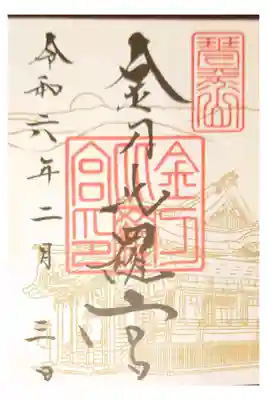 琴平山
金刀比羅宮
金刀比羅宮印
令和六年二月三日